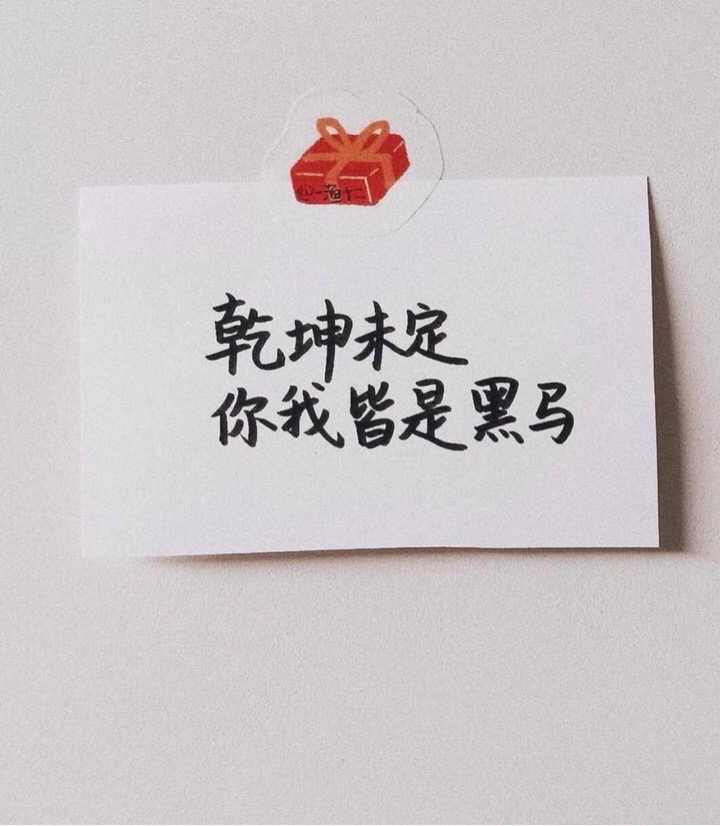 @一渔十二
乾坤未定
你我皆是黑马